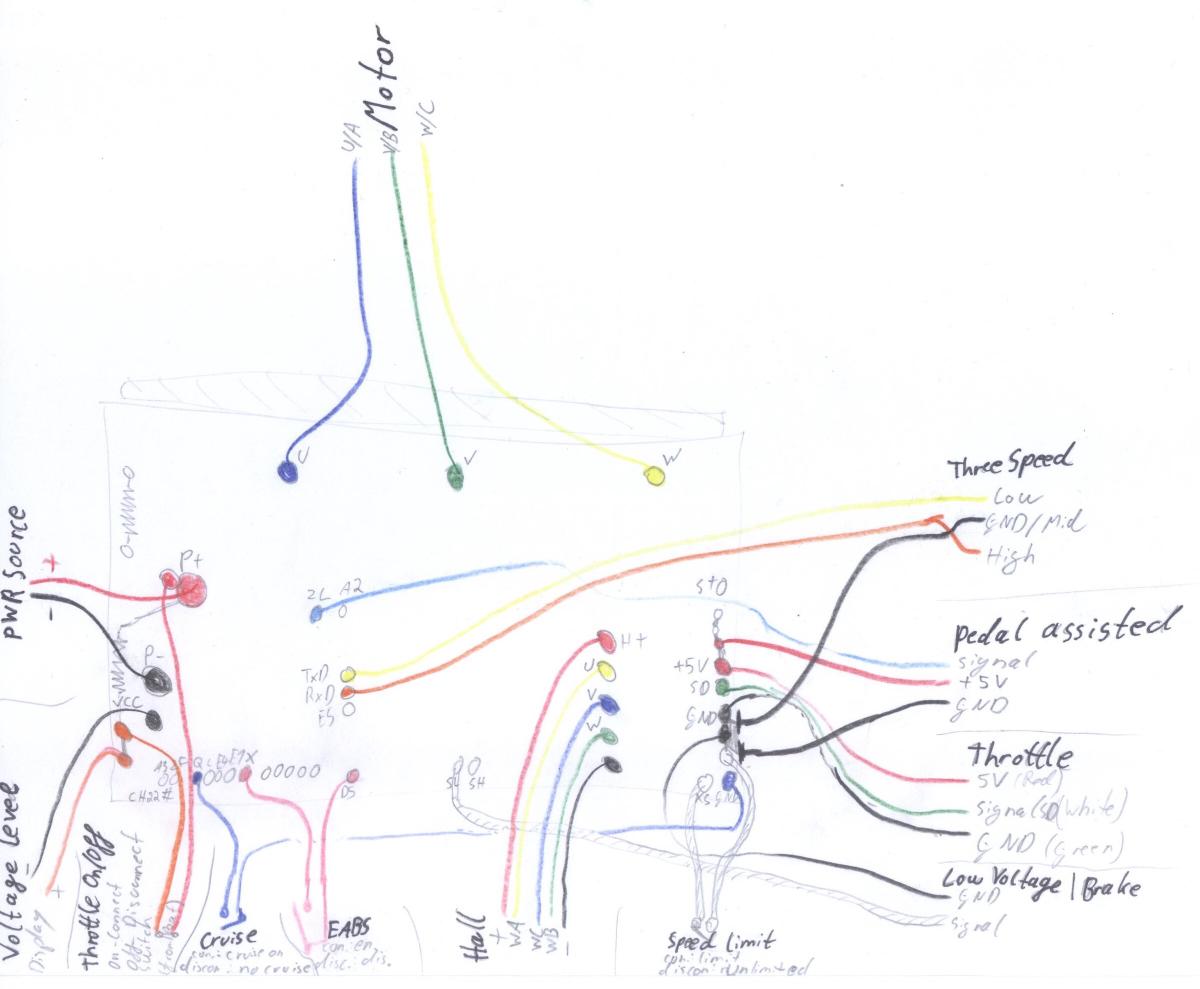 Motor
U/A
V/B
W/C
U
V
W
Three Speed
Low
GND/Mid
High
PWR Source
+
-
P+
P-
VCC
ZL A2
TxD
RxD
ES
H+
U
V
W
+5V
SD
GND
Pedal assisted
signal
+5V
GND
Throttle
5V (Red)
Signal(SD)(White)
GND (Green)
Low Voltage | Brake
GND
Signal
Voltage Level
Display
-
+
Throttle On/off
On-Connect
Off-Disconnect
switch
CH22#
DS
SL SH
XS GND
Cruise
con: cruise on
discon: no cruise
EABS
con: en.
disc: dis.
Hall
+
WA
WC
WB
-
Speed limit
con: limit
discon: unlimited